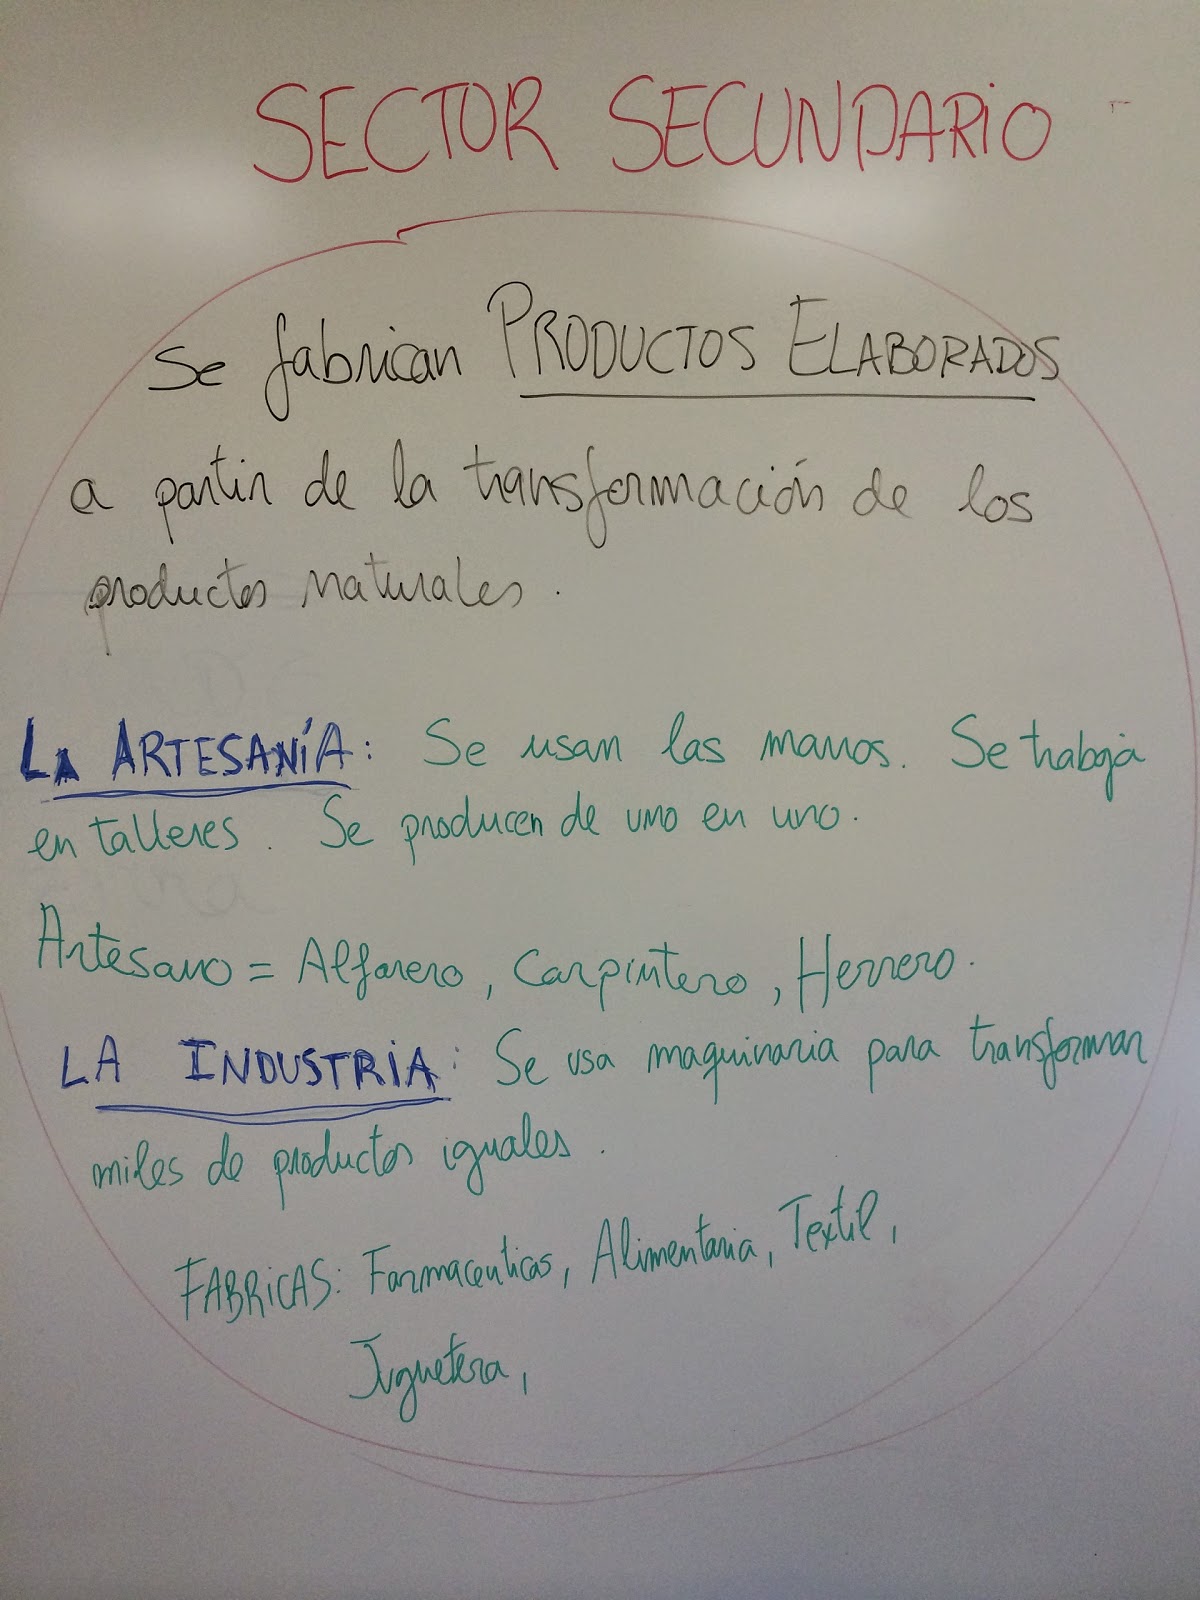 SECTOR SECUNDARIO
Se fabrican PRODUCTOS ELABORADOS
a partir de la transformación de los
productos naturales.
LA ARTESANÍA: Se usan las manos. Se trabaja
en talleres. Se producen de uno en uno.
Artesano = Alfarero, Carpintero, Herrero.
LA INDUSTRIA: Se usa maquinaria para transformar
miles de productos iguales.
FABRICAS: Farmaceuticas, Alimentaria, Textil,
Juguetera,